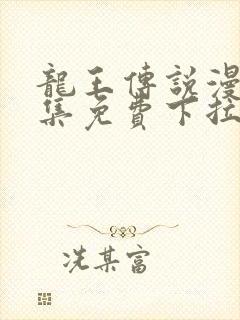 龍王傳説漫
集免費下拉
冼某富